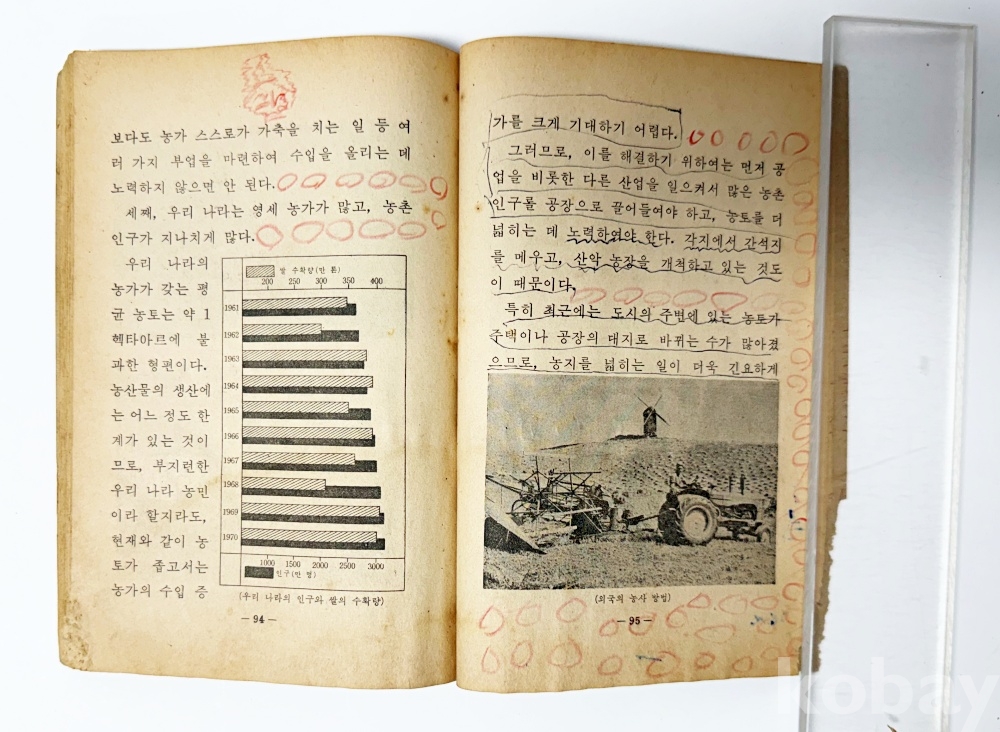 보다도 농가 스스로가 가축을 치는 일 등 여
러 가지 부업을 마련하여 수입을 올리는 데
노력하지 않으면 안 된다.
세째, 우리 나라는 영세 농가가 많고, 농촌
인구가 지나치게 많다.
우리 나라의
농가가 갖는 평
균 농토는 약 1
헥타아르에 불
과한 형편이다.
농산물의 생산에
는 어느 정도 한
계가 있는 것이
므로, 부지런한
우리 나라 농민
이라 할지라도,
현재와 같이 농
토가 좁고서는
농가의 수입 증
쌀 수확량(만 톤)
200 250 300 350 400
1961
1962
1963
1964
1965
1966
1967
1968
1969
1970
1000 1500 2000 2500 3000
인구(만 명)
(우리 나라의 인구와 쌀의 수확량)
— 94 —
가를 크게 기대하기 어렵다.
그러므로, 이를 해결하기 위하여는 먼저 공
업을 비롯한 다른 산업을 일으켜서 많은 농촌
인구를 공장으로 끌어들여야 하고, 농토를 더
넓히는 데 노력하여야 한다. 각지에서 간석지
를 메우고, 산악 농장을 개척하고 있는 것도
이 때문이다.
특히 최근에는 도시의 주변에 있는 농토가
주택이나 공장의 대지로 바뀌는 수가 많아졌
으므로, 농지를 넓히는 일이 더욱 긴요하게
(외국의 농사 방법)
— 95 —
kobay